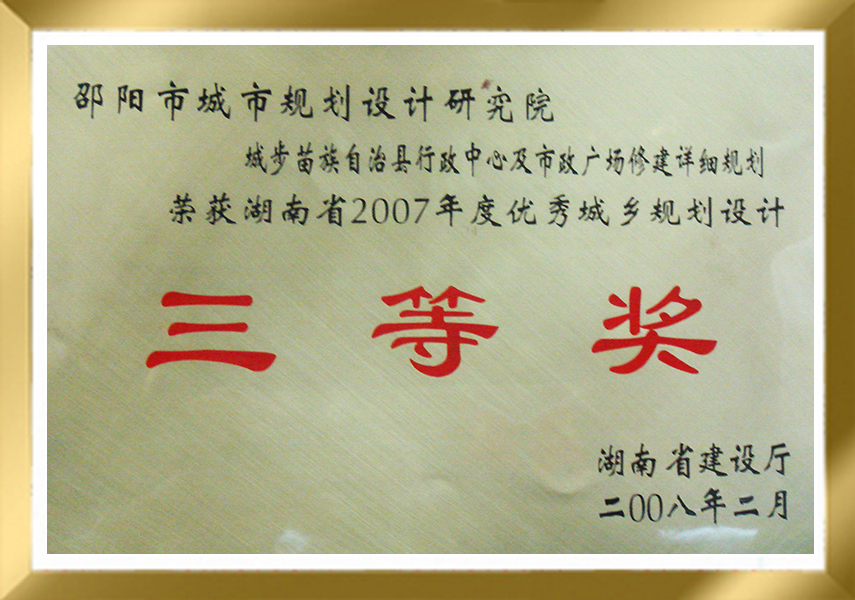 邵阳市城市规划设计研究院
城步苗族自治县行政中心及市政广场修建详细规划
荣获湖南省2007年度优秀城乡规划设计
三等奖
湖南省建设厅
二00八年二月